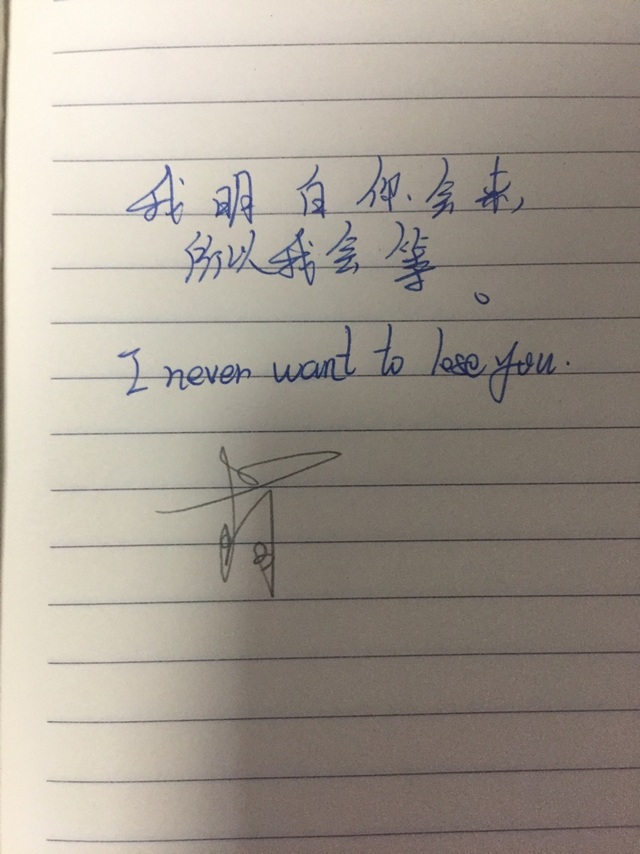 我明白你会来,
所以我会等。
I never want to lose you.